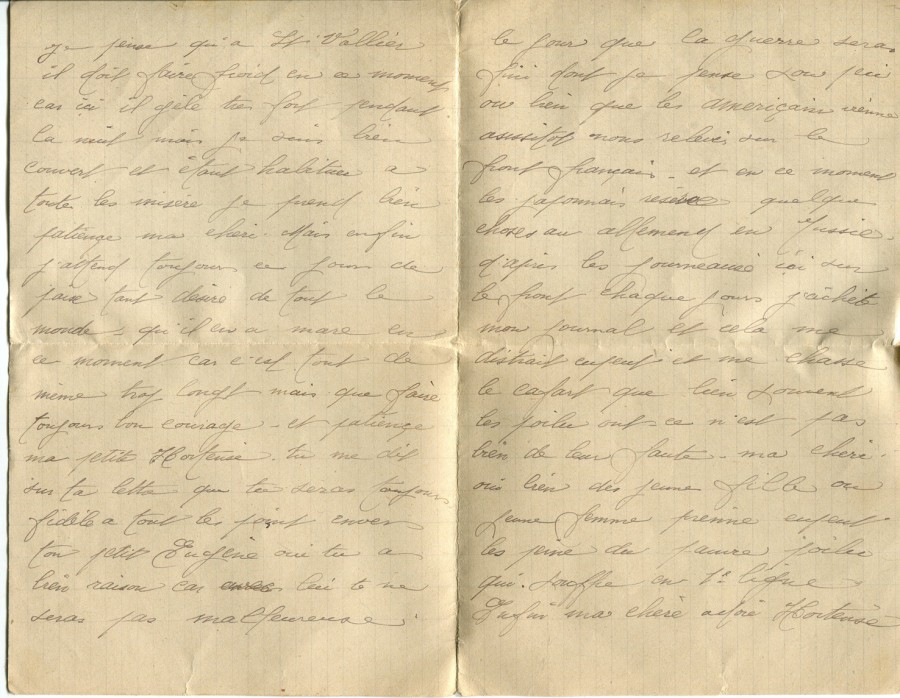 je pense qu'a St Vallier
il doit faire froid en ce moment
car ici il gèle très fort pendant
la nuit mais je suis bien
couvert et étant habituer a
toute les misère je prend bien
patienge ma cheri. Mais enfin
j'attend toujours ce jours de
paix tant désire de tout le
monde, qu'il en a mare en
ce moment car c'est tout de
même trop longt mais que faire
toujours bon courage - et patienge
ma petite Hortense. tu me dit
sur ta lettre que tu seras toujours
fidèle a tout les point envers
ton petit Eugène oui tu a
bien raison car avec lui te ne
seras pas malheureuse.
le jour que la guerre seras
fini dont je pense sou peu
ou bien que les americain vienne
aussitot nous relever sur le
front français - et en ce moment
les japonnais quelque
choses au allemend en Russie.
d'après les journeaux ici sur
le front chaque jours j'achète
mon journal et cela me
distrait enpeut et me chasse
le cafart que bien souvent
les poilu ont - ce n'est pas
bien de leur faute - ma chéri.
ou bien des jeune fille ou
jeune femme prenne enpeut
les peine du pauvre poilu
qui. souffre en 1e ligne
Enfin ma chère Hortense